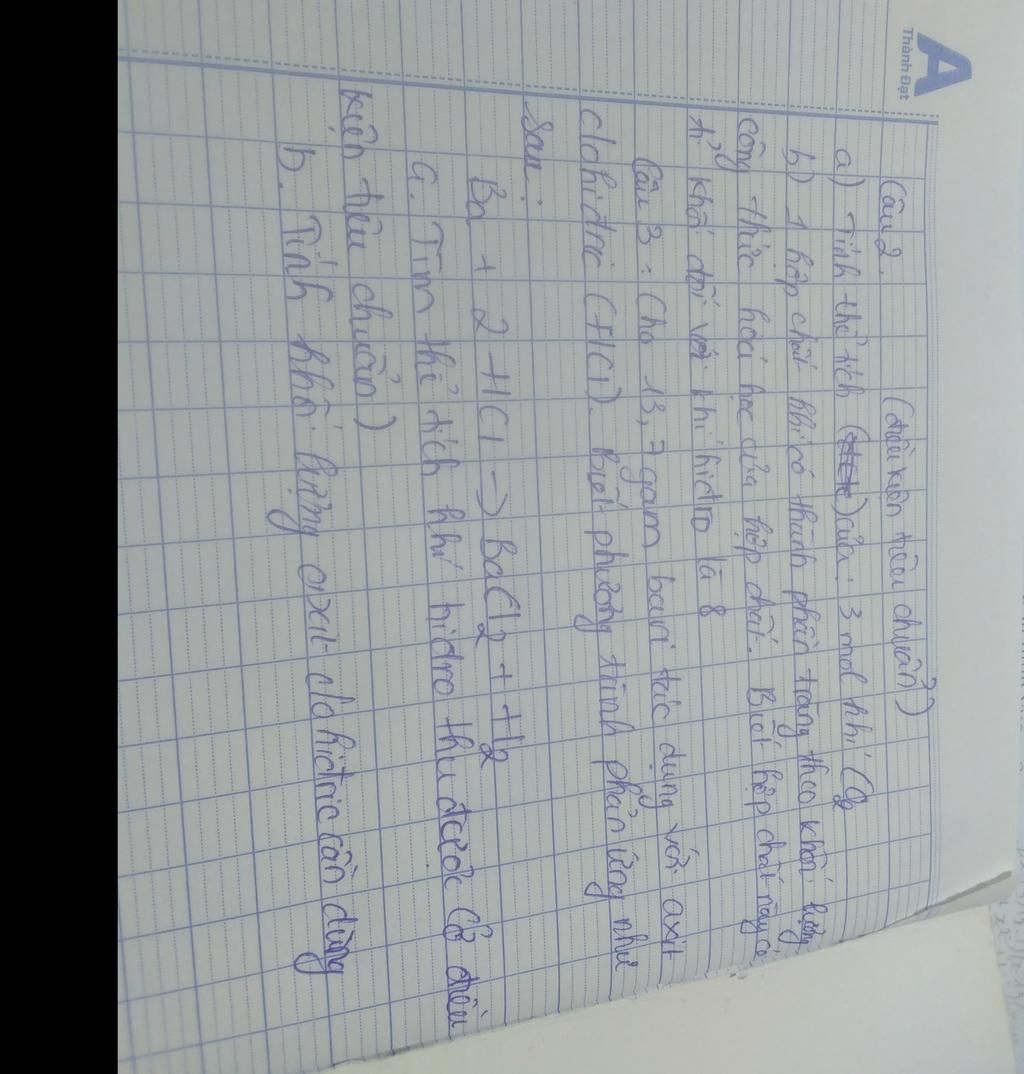 A
Thành Đạt
Câu 2. (điều kiện tiêu chuẩn)
a) Tính thể tích ( ) của: 3 mol khí
b) 1 hợp chất khí có thành phần trăng theo khối lượng
công thức hoá học của hợp chất. Biết hợp chất này có
tỉ khối đối với khí hiđro là 8
Câu 3: Cho 13,7 gam bari tác dụng với axit
clohiđric (HCl). biết phương trình phản ứng như
sau:
Ba + 2 HCl -> BaCl2 + H2
a. Tìm thể tích khí hidro thu được (ở điều
kiện tiêu chuẩn)
b. Tính khối lượng axit clohidric cần dùng